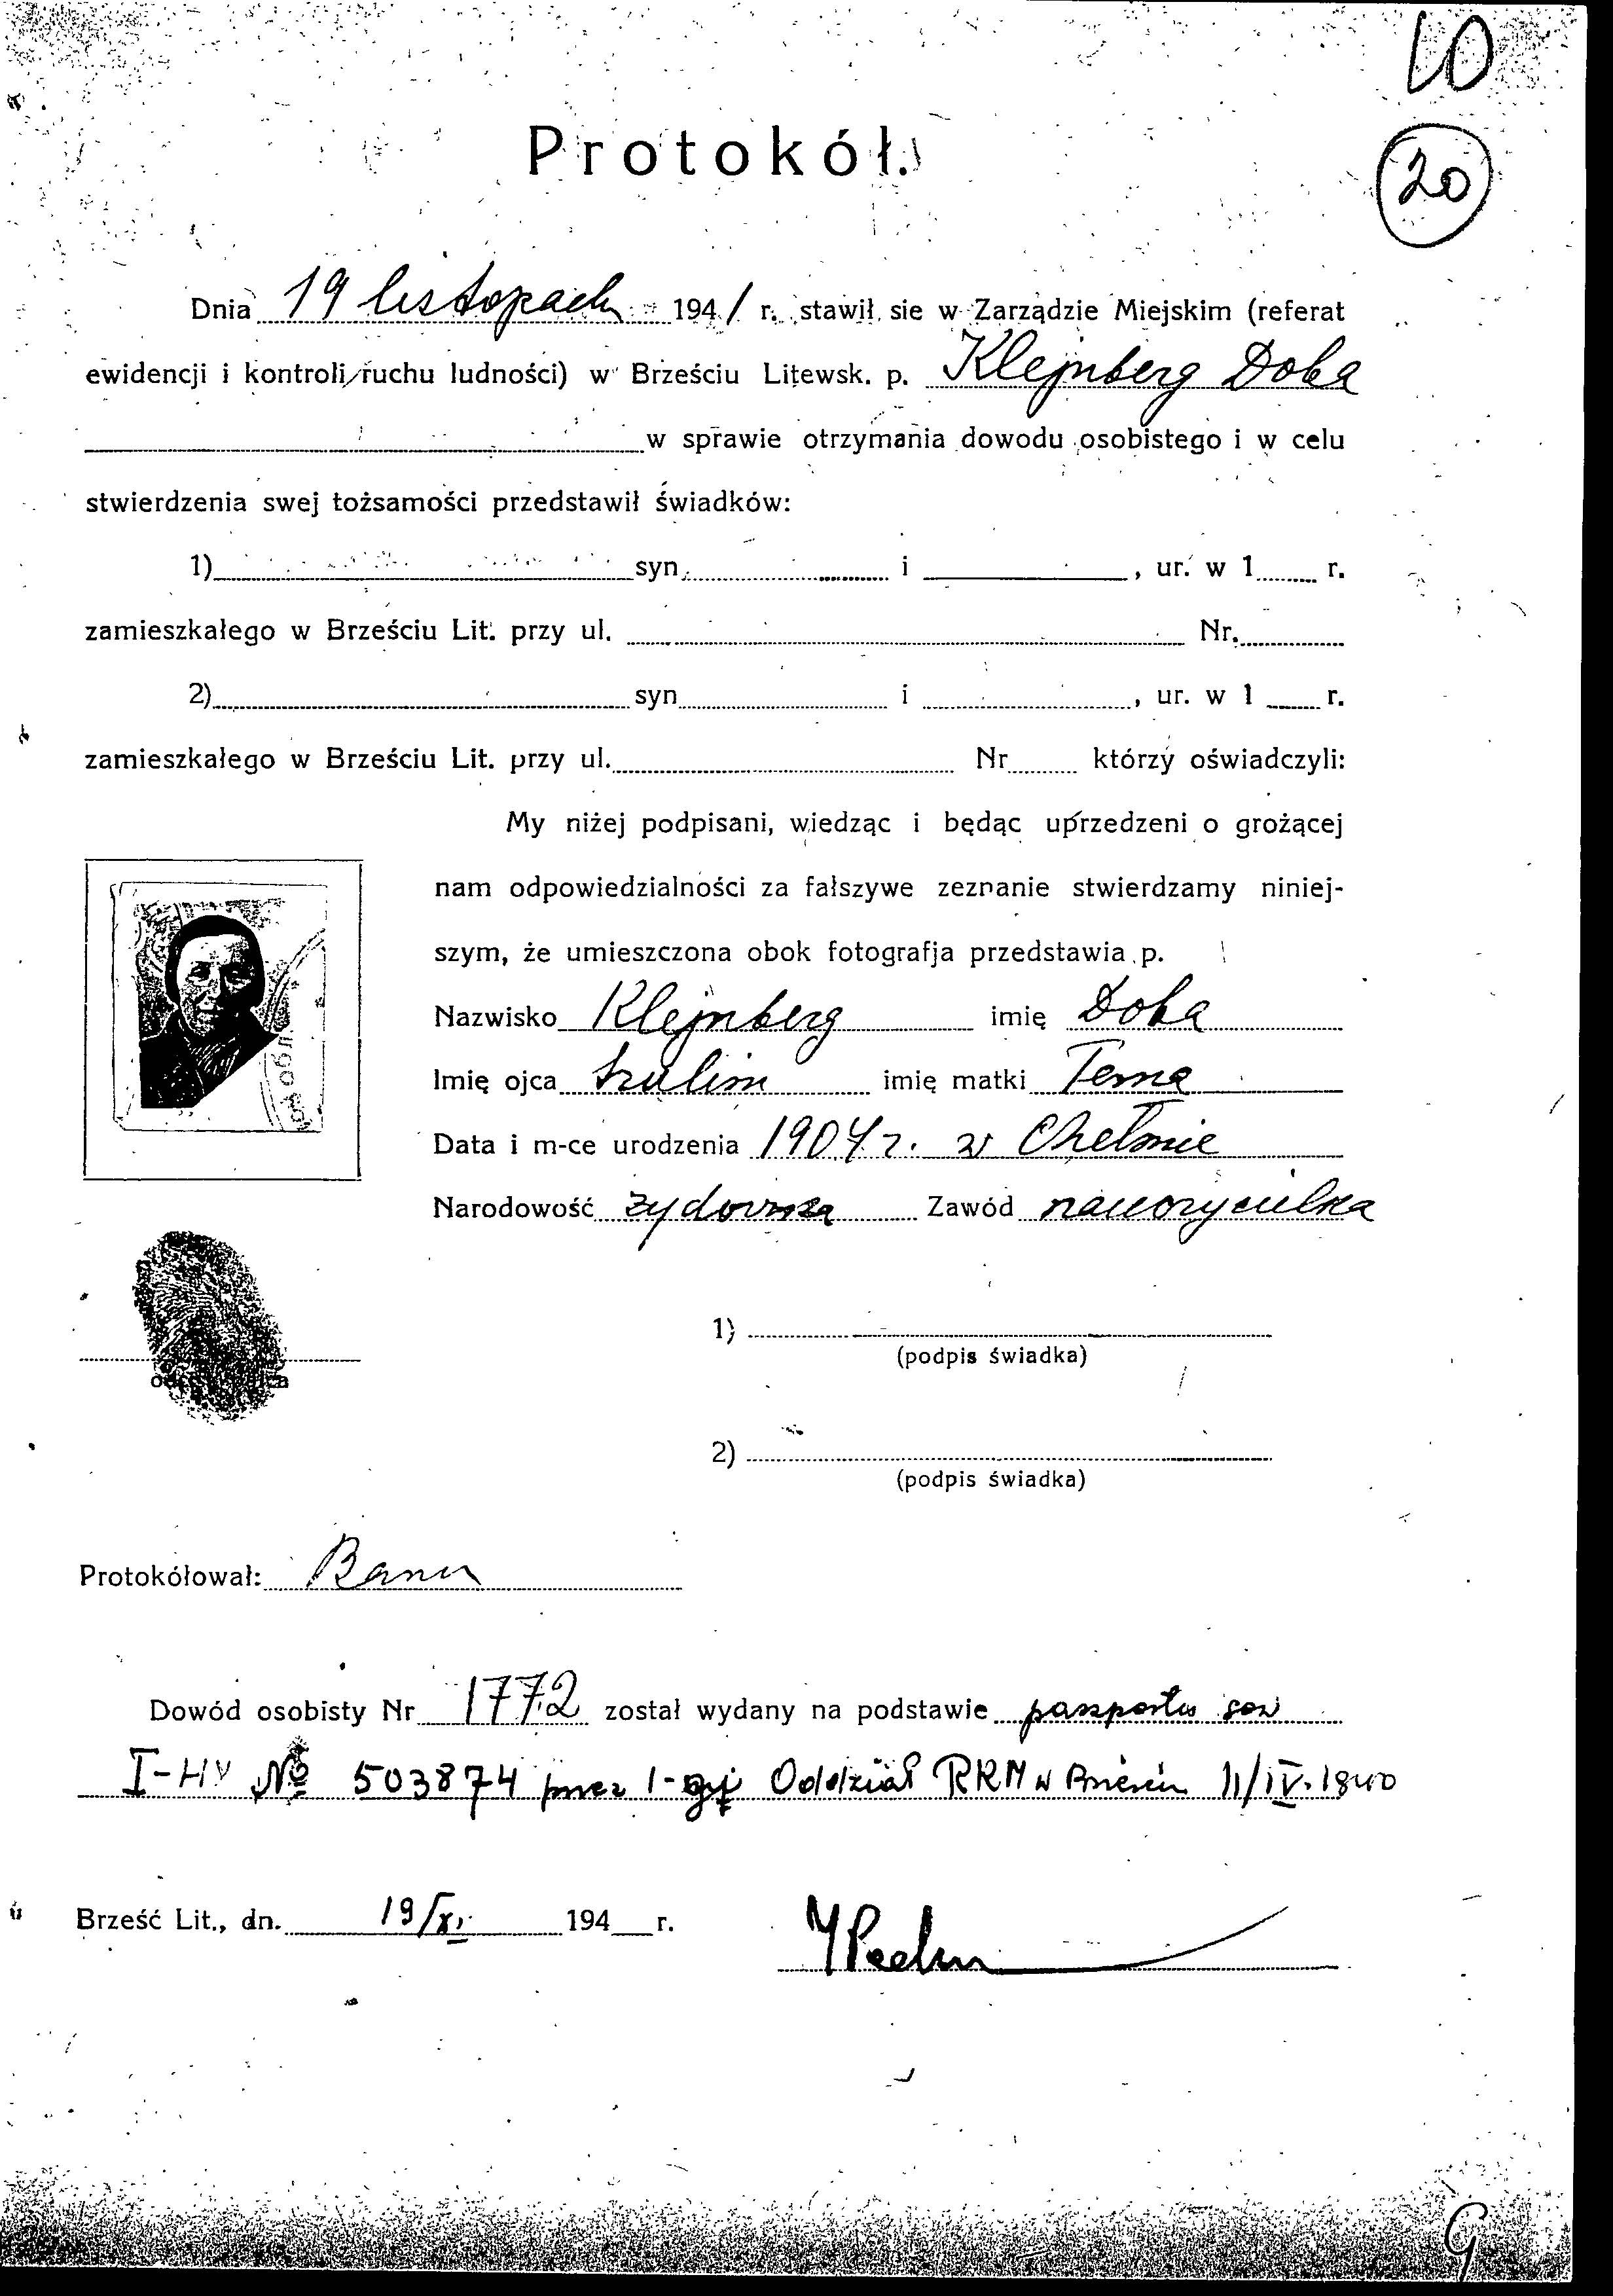 10
20
Protokół.
Dnia 19 listopada 1941 r. stawił sie w Zarządzie Miejskim (referat
ewidencji i kontroli ruchu ludności) w Brześciu Litewsk. p. Klejnberg Doba
w sprawie otrzymania dowodu osobistego i w celu
stwierdzenia swej tożsamości przedstawił świadków:
1) syn i , ur. w 1 r.
zamieszkałego w Brześciu Lit. przy ul. Nr.
2) syn i , ur. w 1 r.
zamieszkałego w Brześciu Lit. przy ul. Nr którzy oświadczyli:
My niżej podpisani, wiedząc i będąc uprzedzeni o grożącej
nam odpowiedzialności za fałszywe zeznanie stwierdzamy niniej-
szym, że umieszczona obok fotografja przedstawia p.
Nazwisko Klejnberg imię Doba
Imię ojca Szulim imię matki Tema
Data i m-ce urodzenia 1904 r. w Chełmie
Narodowość żydowska Zawód nauczycielka
1)
(podpis świadka)
2)
(podpis świadka)
Protokółował:
Dowód osobisty Nr 1772 został wydany na podstawie paszportu sow
I-HV № 503874 przez 1-szy Oddział RKM w Brześciu 11/IV.1940
Brześć Lit., dn. 19/XI 194 r.